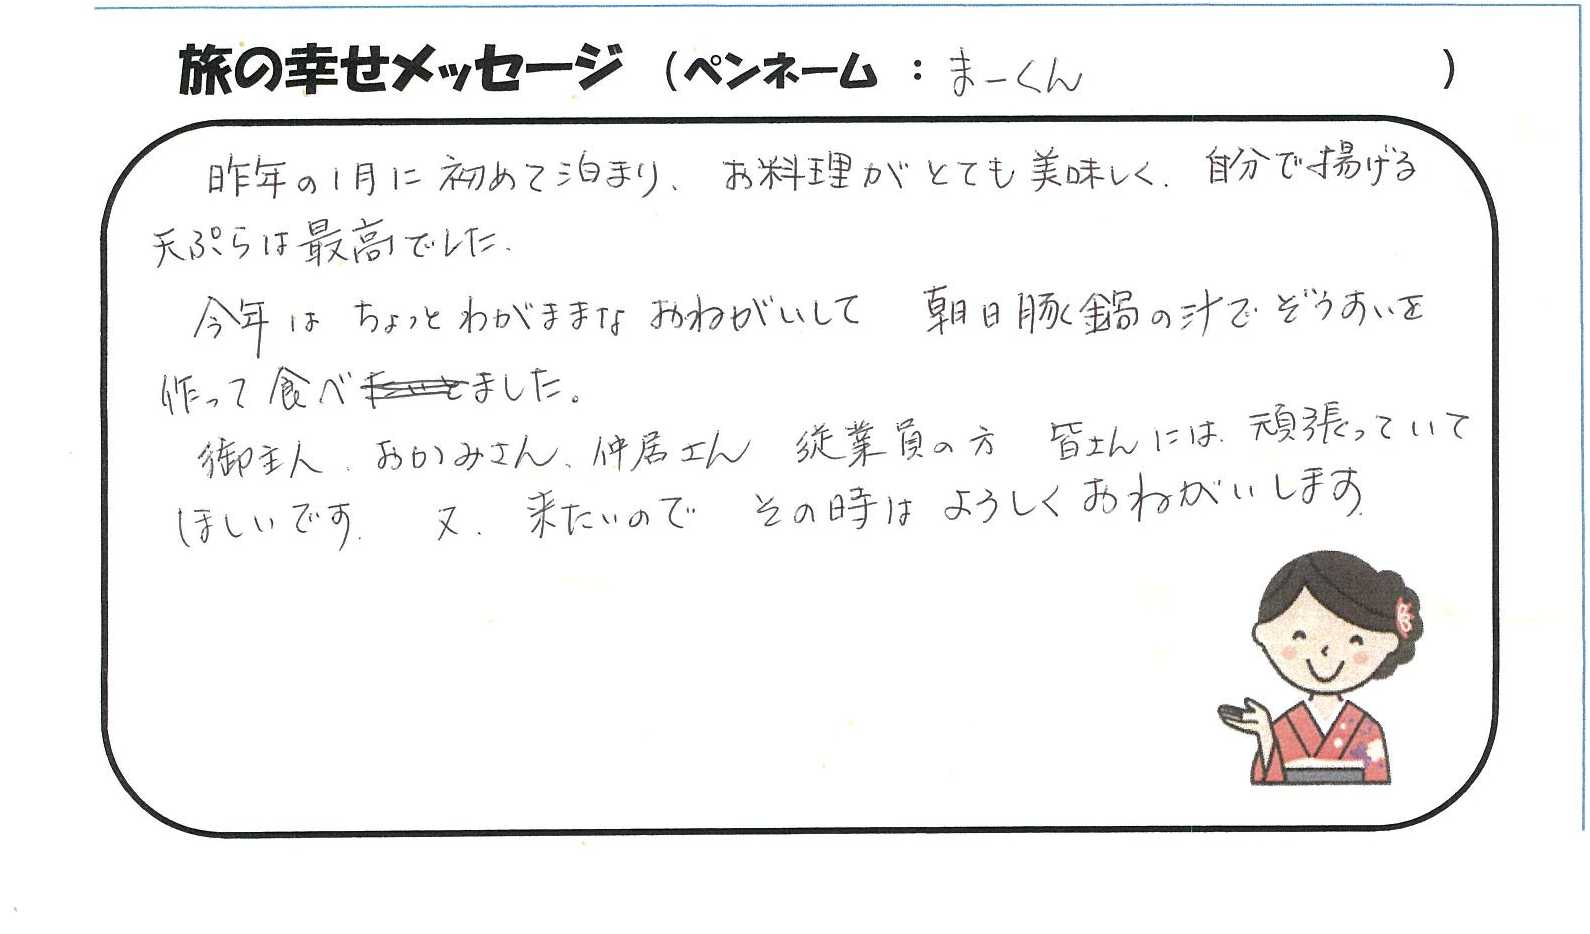 旅の幸せメッセージ （ペンネーム ： まーくん ）
昨年の1月に初めて泊まり、お料理がとても美味しく、自分で揚げる
天ぷらは最高でした。
今年はちょっとわがままなおねがいして 朝日豚鍋の汁でぞうすいを
作って食べました。
御主人、おかみさん、仲居さん 従業員の方 皆さんには、頑張っていて
ほしいです。 又、来たいので その時はようしくおねがいします。